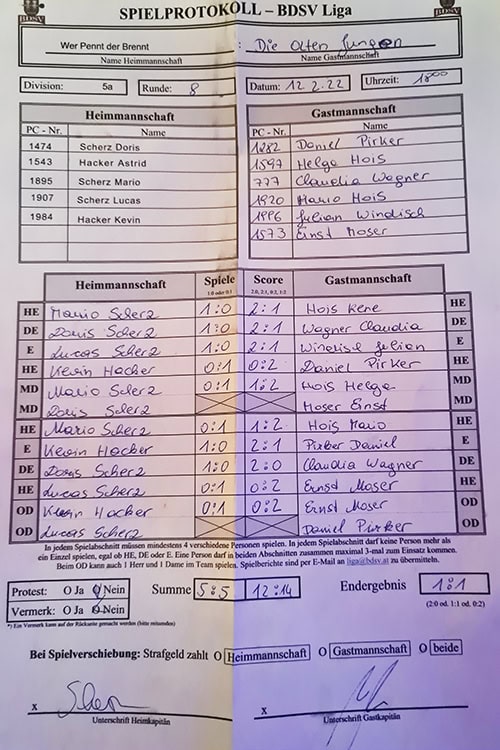 SPIELPROTOKOLL – BDSV Liga
BDSV
BDSV
Wer Pennt der Brennt : Die Alten Jungen
Name Heimmannschaft Name Gastmannschaft
Division: 5a Runde: 8 Datum: 12.2.22 Uhrzeit: 18⁰⁰
Heimmannschaft Gastmannschaft
PC - Nr. Name PC - Nr. Name
1474 Scherz Doris 1282 Daniel Pirker
1543 Hacker Astrid 1597 Helga Hois
1895 Scherz Mario 777 Claudia Wagner
1907 Scherz Lucas 1920 Mario Hois
1984 Hacker Kevin 1996 Julian Windisch
1573 Ernst Moser
Heimmannschaft Spiele Score Gastmannschaft
1:0 oder 0:1 2:0, 2:1, 0:2, 1:2
HE Mario Scherz 1:0 2:1 Hois Rene HE
DE Doris Scherz 1:0 2:1 Wagner Claudia DE
E Lucas Scherz 1:0 2:1 Windisch Julian E
HE Kevin Hacker 0:1 0:2 Daniel Pirker HE
MD Mario Scherz 0:1 1:2 Hois Helga MD
MD Doris Scherz Moser Ernst MD
HE Mario Scherz 0:1 1:2 Hois Mario HE
E Kevin Hacker 1:0 2:1 Pirker Daniel E
DE Doris Scherz 1:0 2:0 Claudia Wagner DE
HE Lucas Scherz 0:1 0:2 Ernst Moser HE
OD Kevin Hacker 0:1 0:2 Ernst Moser OD
OD Lucas Scherz Daniel Pirker OD
In jedem Spielabschnitt müssen mindestens 4 verschiedene Personen spielen. In jedem Spielabschnitt darf keine Person mehr als
ein Einzel spielen, egal ob HE, DE oder E. Eine Person darf in beiden Abschnitten zusammen maximal 3-mal zum Einsatz kommen.
Beim OD kann auch 1 Herr und 1 Dame im Team spielen. Spielberichte sind per E-Mail an liga@bdsv.at zu übermitteln.
Protest: O Ja O Nein Summe 5:5 12:14 Endergebnis 1:1
Vermerk: O Ja O Nein (2:0 od. 1:1 od. 0:2)
*) Ein Vermerk kann auf der Rückseite gemacht werden (bitte mitsenden)
Bei Spielverschiebung: Strafgeld zahlt O Heimmannschaft O Gastmannschaft O beide
x x
Unterschrift Heimkapitän Unterschrift Gastkapitän